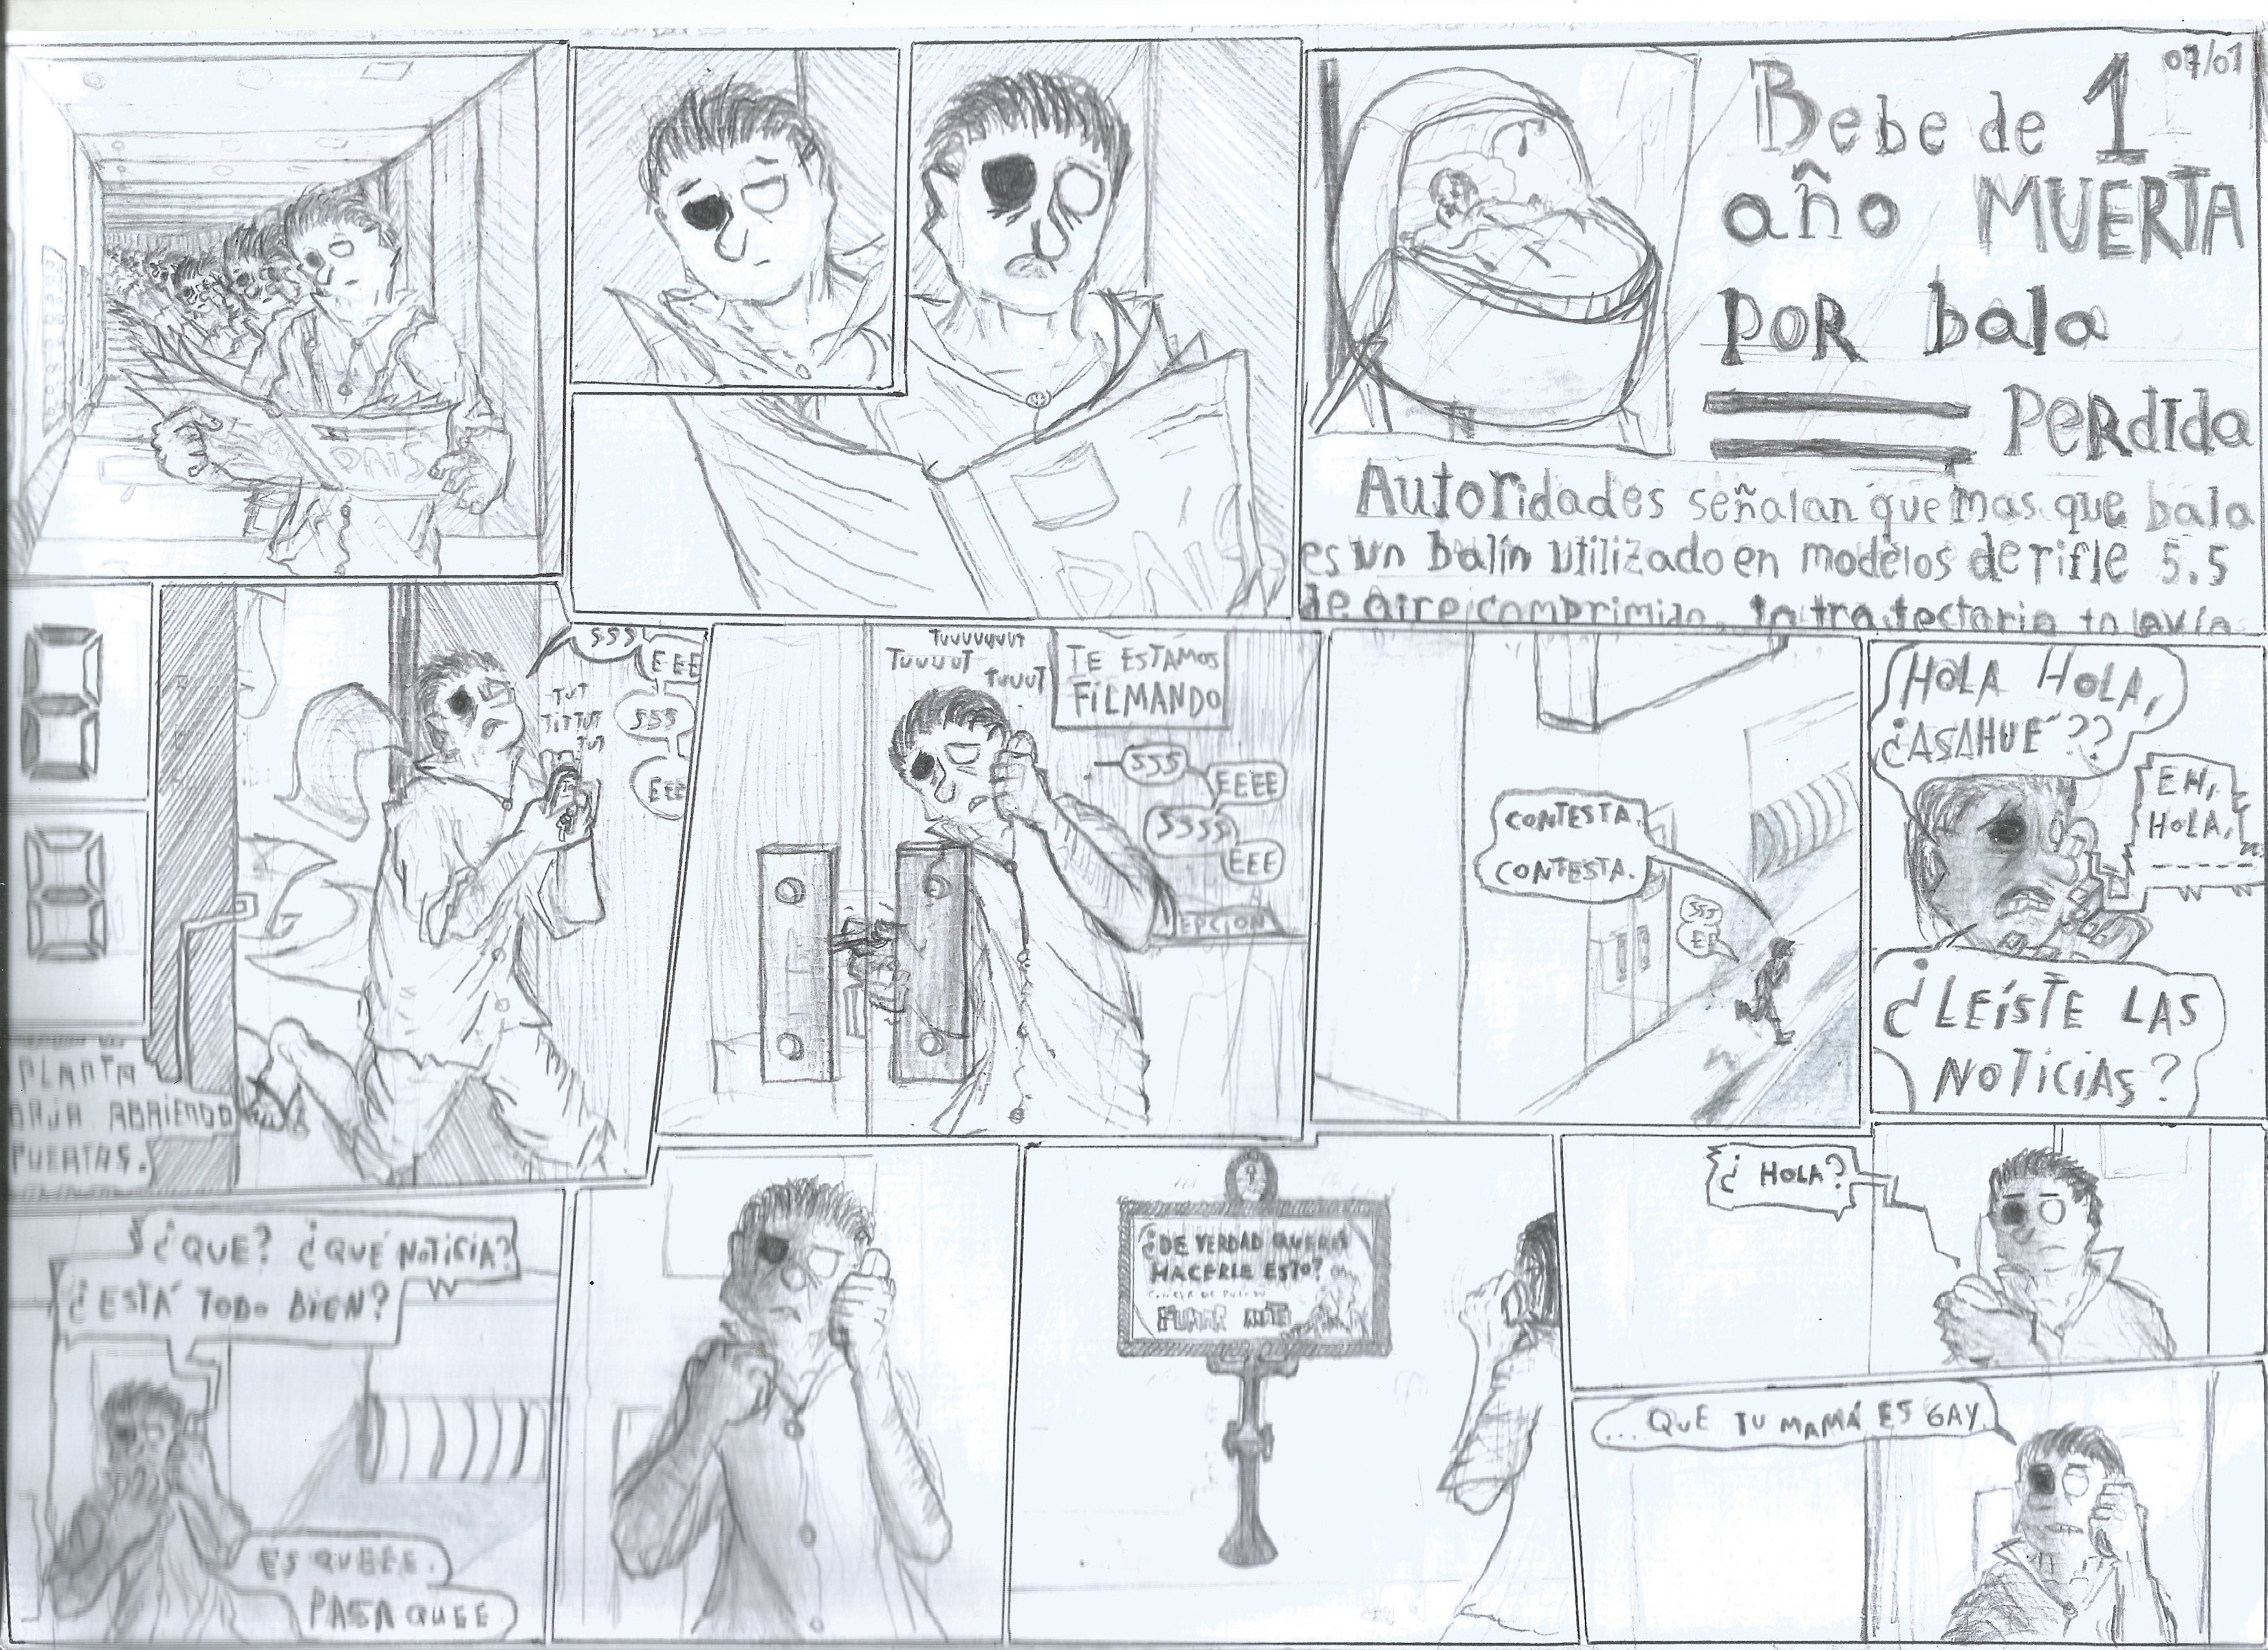 PAIS
PAIS
07/01
Bebe de 1
año MUERTA
POR bala
Perdida
Autoridades señalan que mas que bala
es un balín utilizado en modelos de rifle 5.5
de aire comprimido, la
PLANTA
BAJA ABRIENDO
PUERTAS.
SSS
EEE
SSS
EEE
TUT
TUT
TUUUUUUT
TUUUUT
TUUUT
TE ESTAMOS
FILMANDO
SSS
EEEE
SSSS
EEE
EPCION
CONTESTA.
CONTESTA.
SSS
EE
HOLA HOLA,
¿ASAHUÉ??
EH,
HOLA,
¿LEÍSTE LAS
NOTICIAS?
¿QUE? ¿QUÉ NOTICIA?
¿ESTÁ TODO BIEN?
ES QUEEE.
PASA QUEE
¿DE VERDAD QUERÉS
HACERLE ESTO?
FUMAR MATA
¿HOLA?
...QUE TU MAMÁ ES GAY.